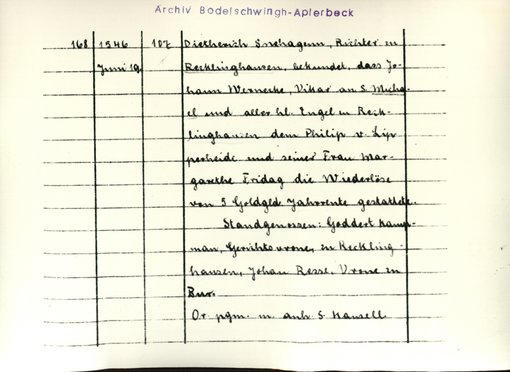 Archiv Bodelschwingh-Aplerbeck
168 1546 107 Dietherich Snehagenn, Richter zu
Juni 19. Recklinghausen, bekundet, dass Jo-
hann Wernecke, Vikar an S. Micha-
el und aller hl. Engel in Reck-
linghausen dem Philip v. Lip
perheide und seiner Frau Mar-
garethe Fridag die Wiederlöse
von 5 Goldgld. Jahrrente gestattete.
Standgenossen: Goddert Kamp-
man, Gerichtsvrone, in Reckling-
hausen, Johan Resse, Vrone in
Bur.
Or. pgm. m. anh. S.